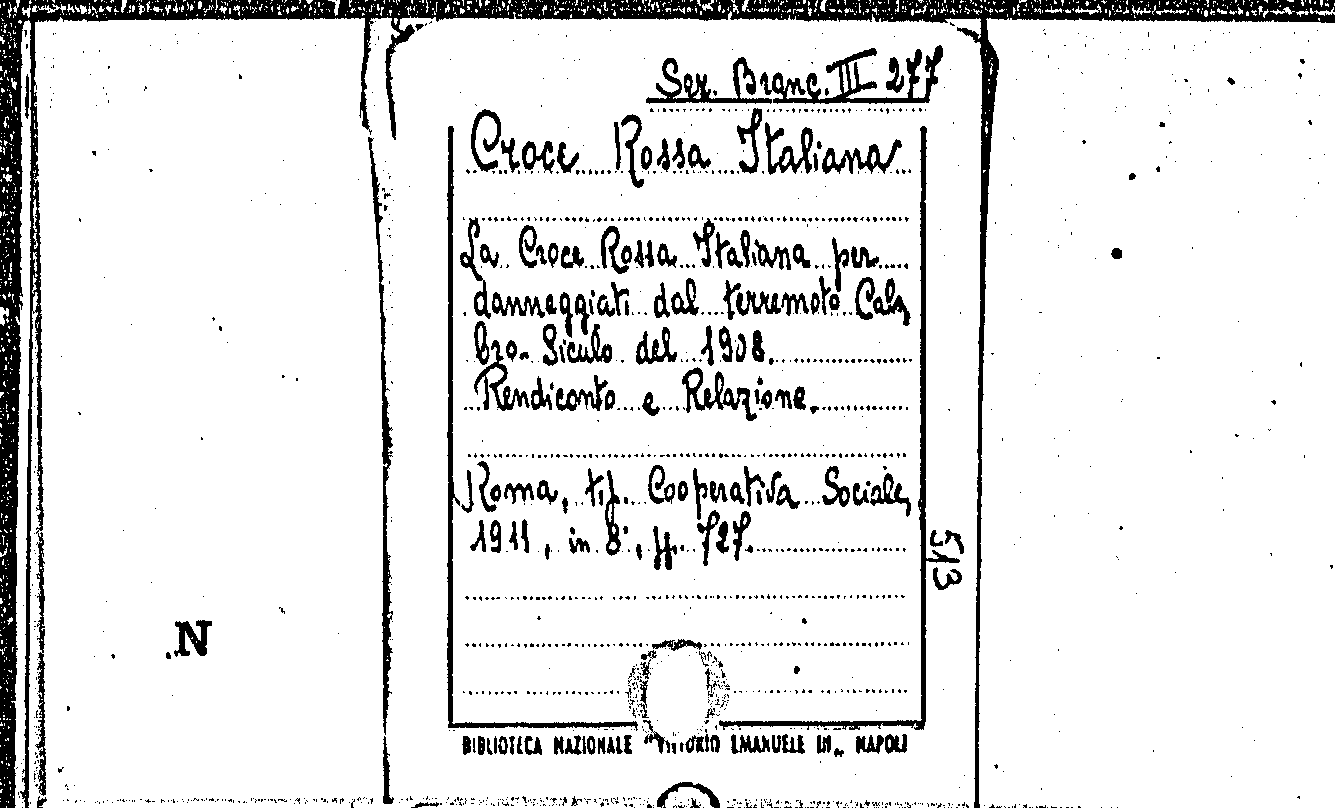 Sez. Branc. III 277
Croce Rossa Italiana
La Croce Rossa Italiana per
danneggiati dal terremoto Cala
bro-Siculo del 1908.
Rendiconto e Relazione.
Roma, tip. Cooperativa Sociale,
1911, in 8°, pp. 727.
5/3
N
BIBLIOTECA NAZIONALE "VITTORIO EMANUELE III„ NAPOLI